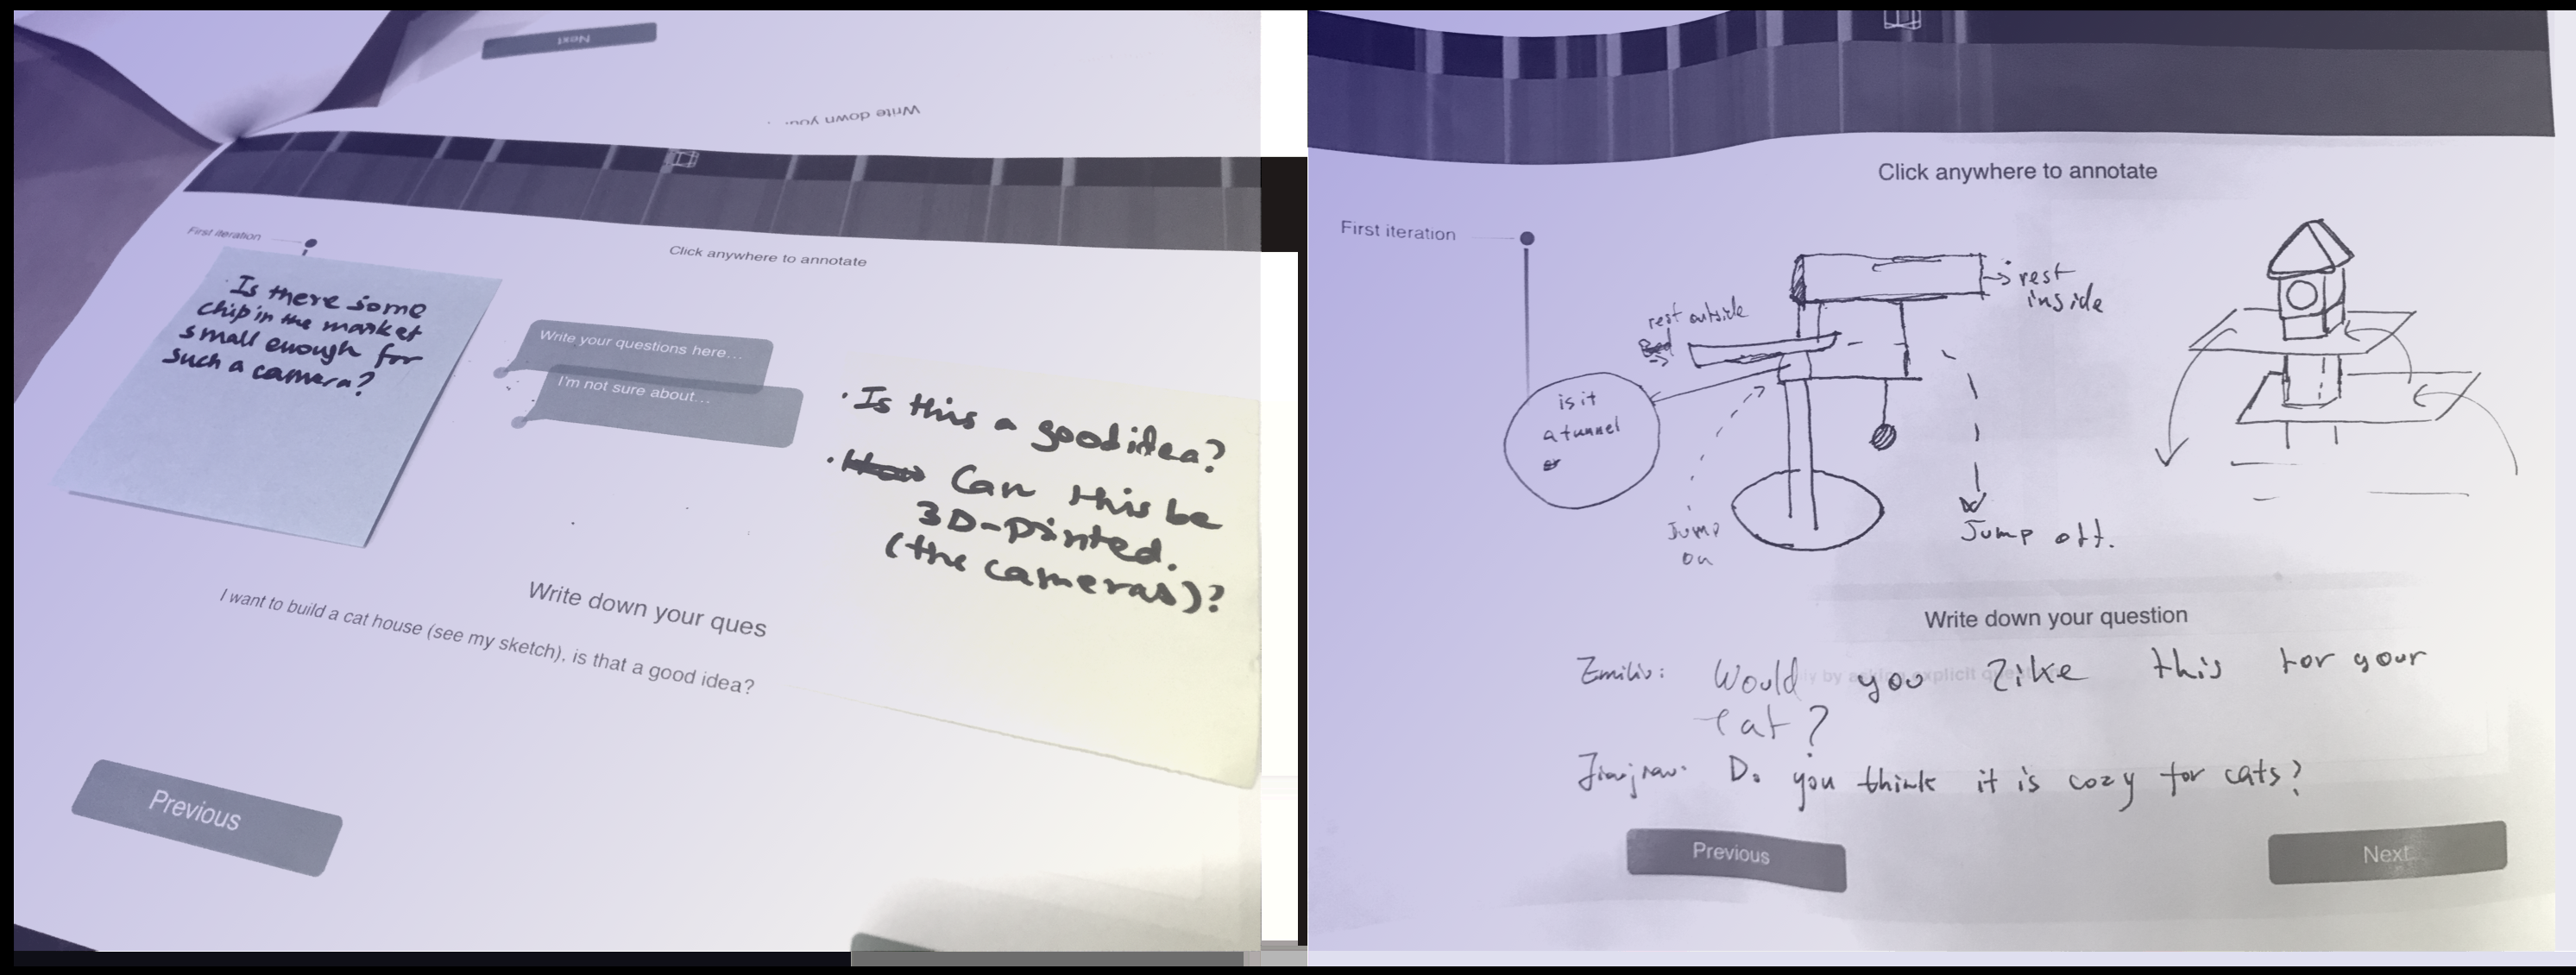 Next
Write down you...
First iteration
Click anywhere to annotate
Is there some
chip in the market
small enough for
such a camera?
Write your questions here...
I'm not sure about...
· Is this a good idea?
· Can this be
3D-printed.
(the cameras)?
Write down your ques
I want to build a cat house (see my sketch), is that a good idea?
Previous
Click anywhere to annotate
First iteration
rest
inside
rest outside
is it
a tunnel
or
Jump
on
Jump off.
Write down your question
Emiliu: Would you like this for your
cat?
Do you think it is cozy for cats?
Previous
Next